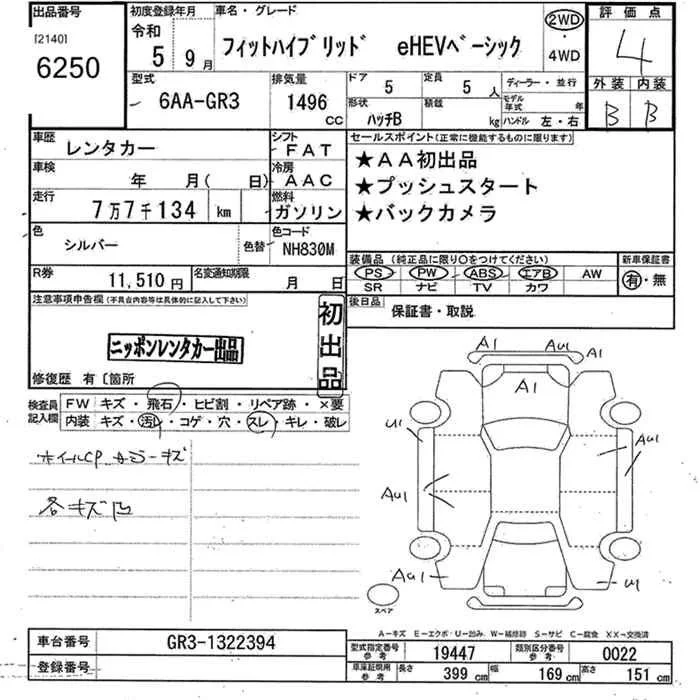 出品番号
[2140]
6250
初度登録年月
令和
5年 9月
車名・グレード
フィットハイブリッド eHEVベーシック
2WD
・
4WD
評価点
4
外装 内装
B B
型式
6AA-GR3
排気量
1496 CC
ドア
5
定員
5人
形状
ハッチB
積載
kg
ディーラー・並行
モデル年式 年
ハンドル 左・右
車歴
レンタカー
シフト
FAT
車検
年 月( 日)
冷房
AAC
走行
7万7千134 km
燃料
ガソリン
色
シルバー
色替
色コード
NH830M
R券
11,510円
名変通知期限
月 日
セールスポイント(正常に機能するものに限ります)
★AA初出品
★プッシュスタート
★バックカメラ
装備品(純正品に限り○をつけてください)
PS PW ABS エアB AW
SR ナビ TV カワ
新車保証書
有・無
後日品
保証書・取説
注意事項申告欄(不具合内容等は具体的に記入して下さい)
ニッポンレンタカー出品
初出品
修復歴 有〔箇所
検査員記入欄
FW キズ・飛石・ヒビ割・リペア跡・×要
内装 キズ・汚レ・コゲ・穴・スレ・キレ・破レ
ホイルCP カバーキズ
各キズ凹
A1 AU1 A1
A1
U1
AU1
AU1
AU1
U1
スペア
A-キズ E-エクボ・U-凹み W-補修跡 S-サビ C-腐食 XX-交換済
車台番号
GR3-1322394
登録番号
型式指定番号参考
19447
類別区分番号参考
0022
車庫証明用参考
長さ 399 cm 幅 169 cm 高さ 151 cm